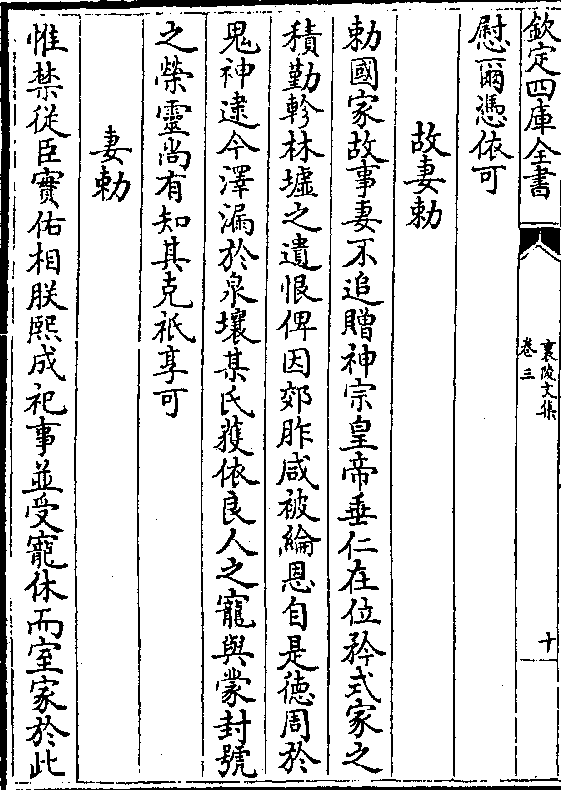 欽定四庫全書
襄陵文集
卷三
十
慰爾憑依可
故妻勅
勅國家故事妻不追贈神宗皇帝垂仁在位矜式家之
積勤軫林墟之遺恨俾因郊胙咸被綸恩自是徳周於
鬼神逮今澤漏於泉壤某氏蚤依良人之寵與蒙封號
之榮靈尚有知其克祗享可
妻勅
惟禁從臣實佑相朕熙成祀事並受寵休而室家於此